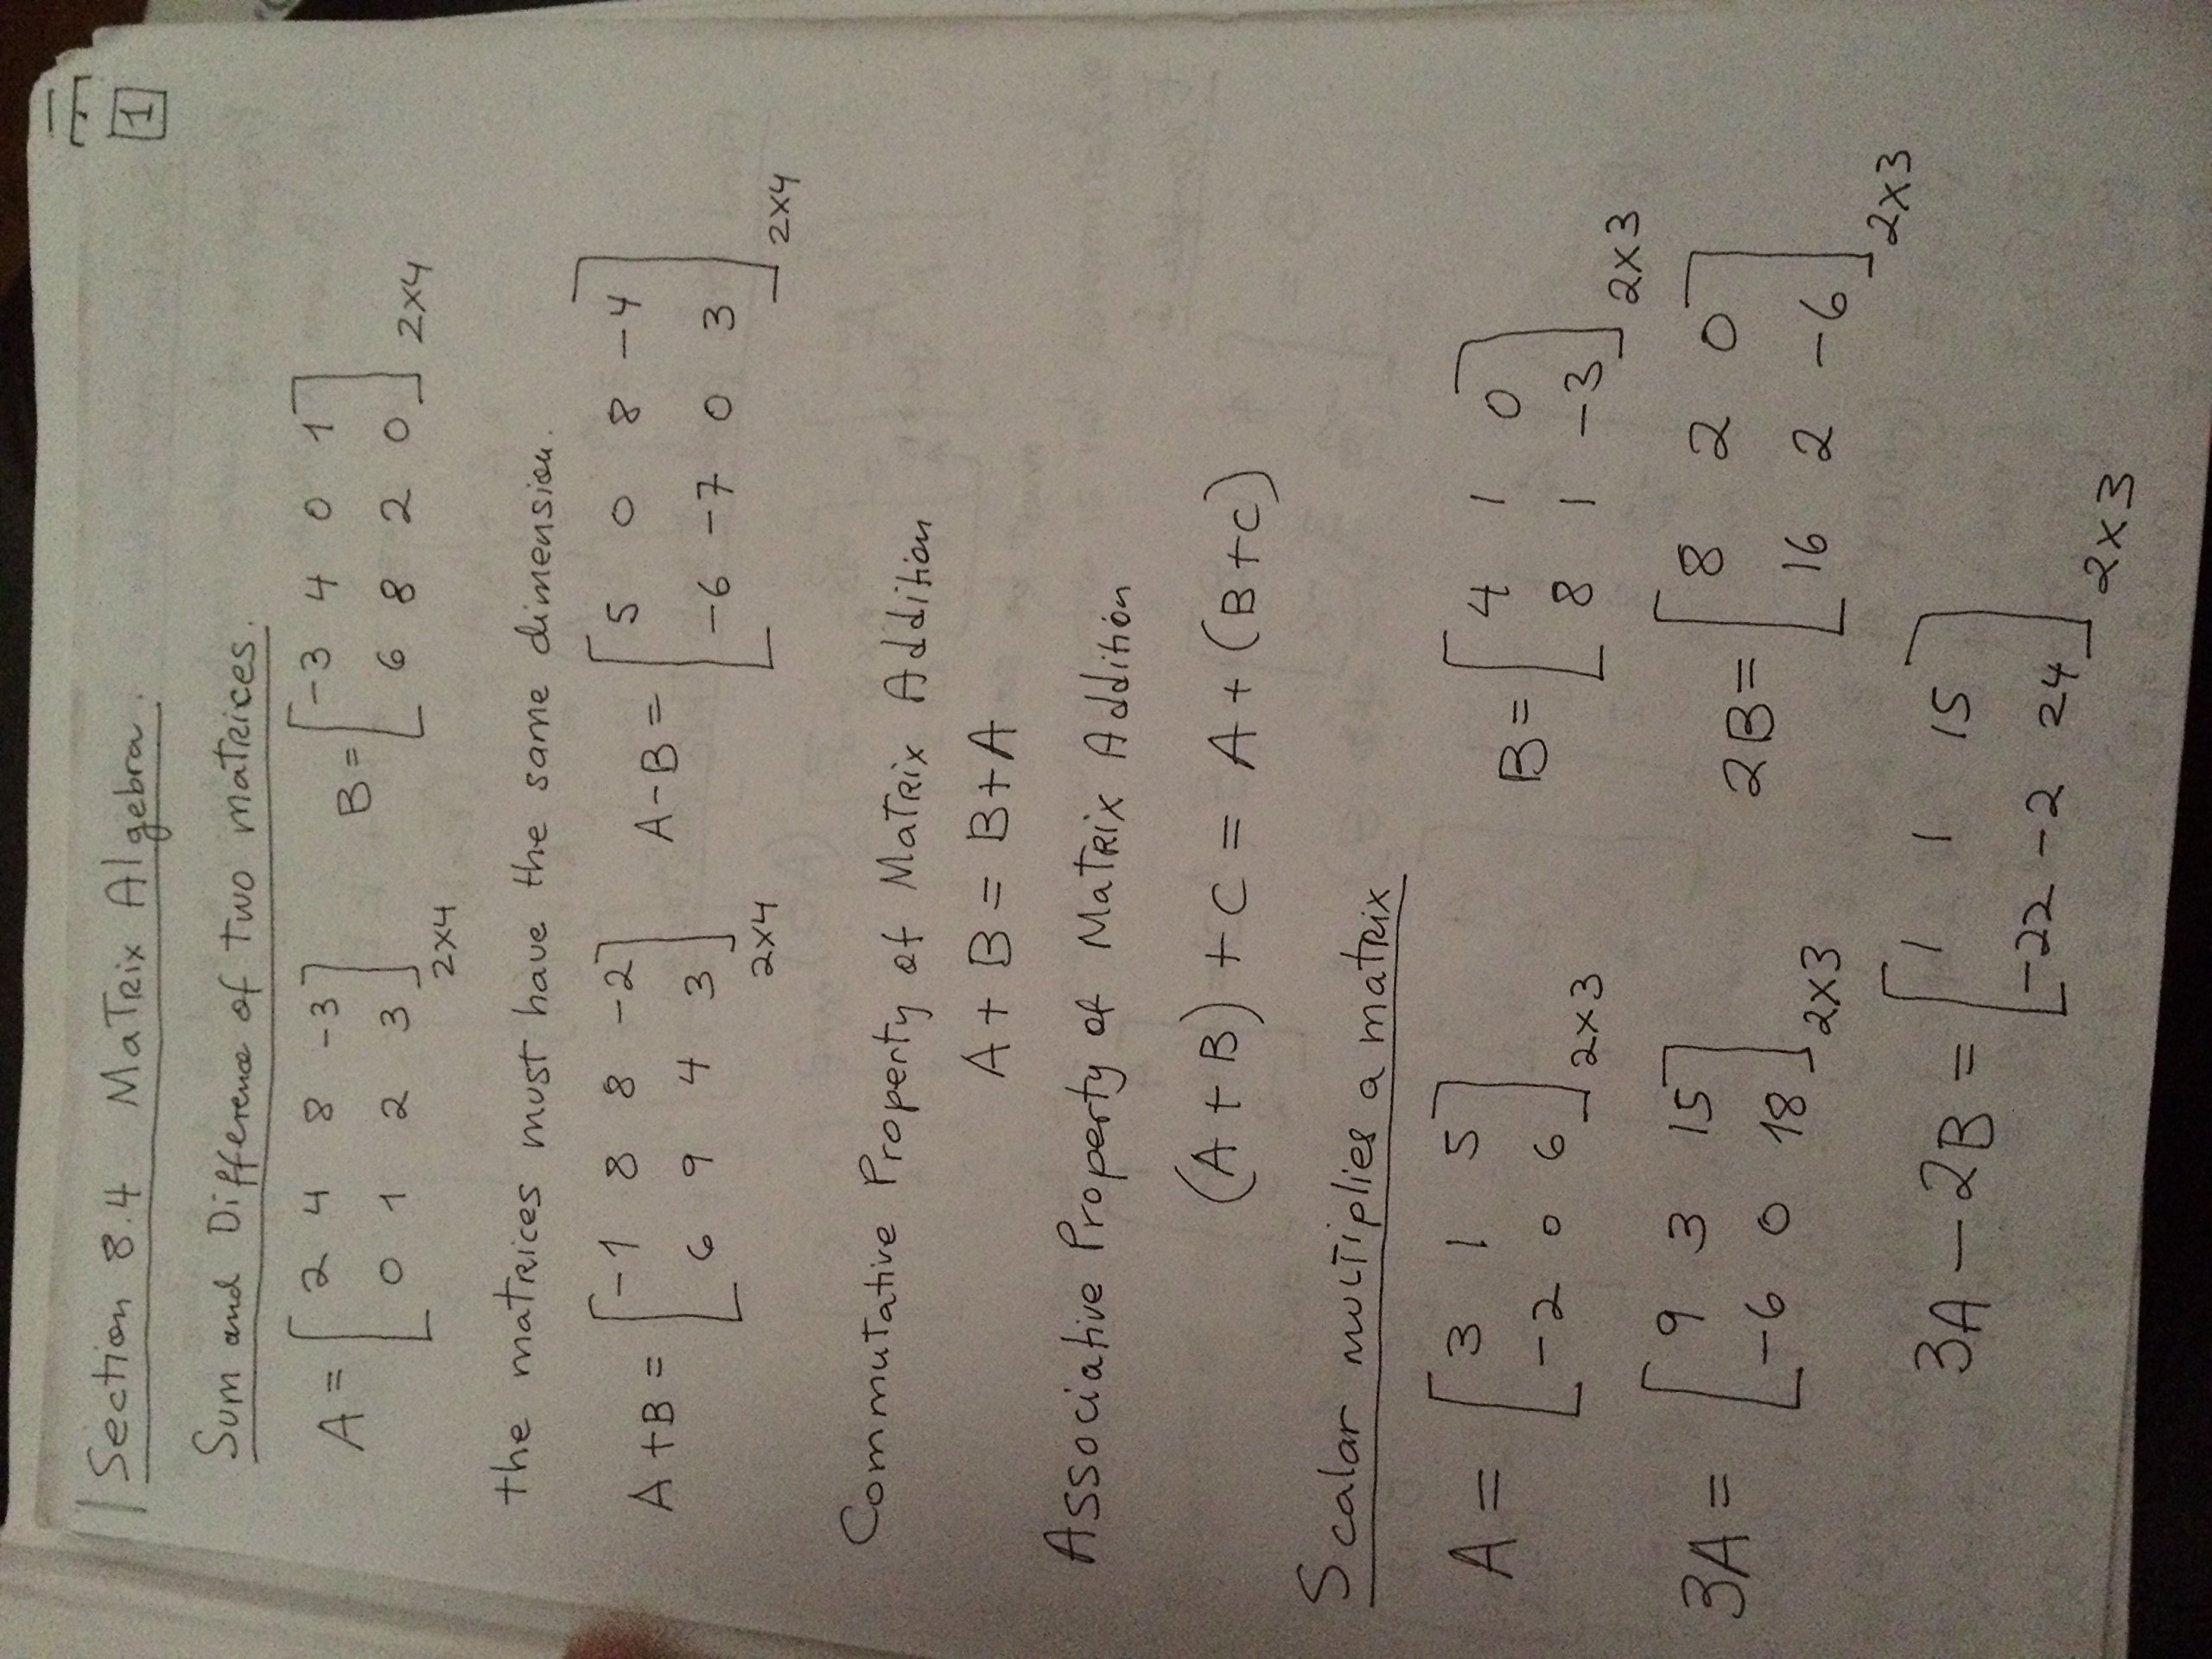 Section 8.4 Matrix Algebra.
1
Sum and Difference of two matrices.
A = [ 2 4 8 -3 ] B = [ -3 4 0 1 ]
[ 0 1 2 3 ] 2x4 [ 6 8 2 0 ] 2x4
the matrices must have the same dimension.
A+B = [ -1 8 8 -2 ] A-B = [ 5 0 8 -4 ]
[ 6 9 4 3 ] 2x4 [ -6 -7 0 3 ] 2x4
Commutative Property of Matrix Addition
A + B = B + A
Associative Property of Matrix Addition
(A + B) + C = A + (B + C)
Scalar multiplies a matrix
A = [ 3 1 5 ] B = [ 4 1 0 ]
[ -2 0 6 ] 2x3 [ 8 1 -3 ] 2x3
3A = [ 9 3 15 ] 2B = [ 8 2 0 ]
[ -6 0 18 ] 2x3 [ 16 2 -6 ] 2x3
3A - 2B = [ 1 1 15 ]
[ -22 -2 24 ] 2x3